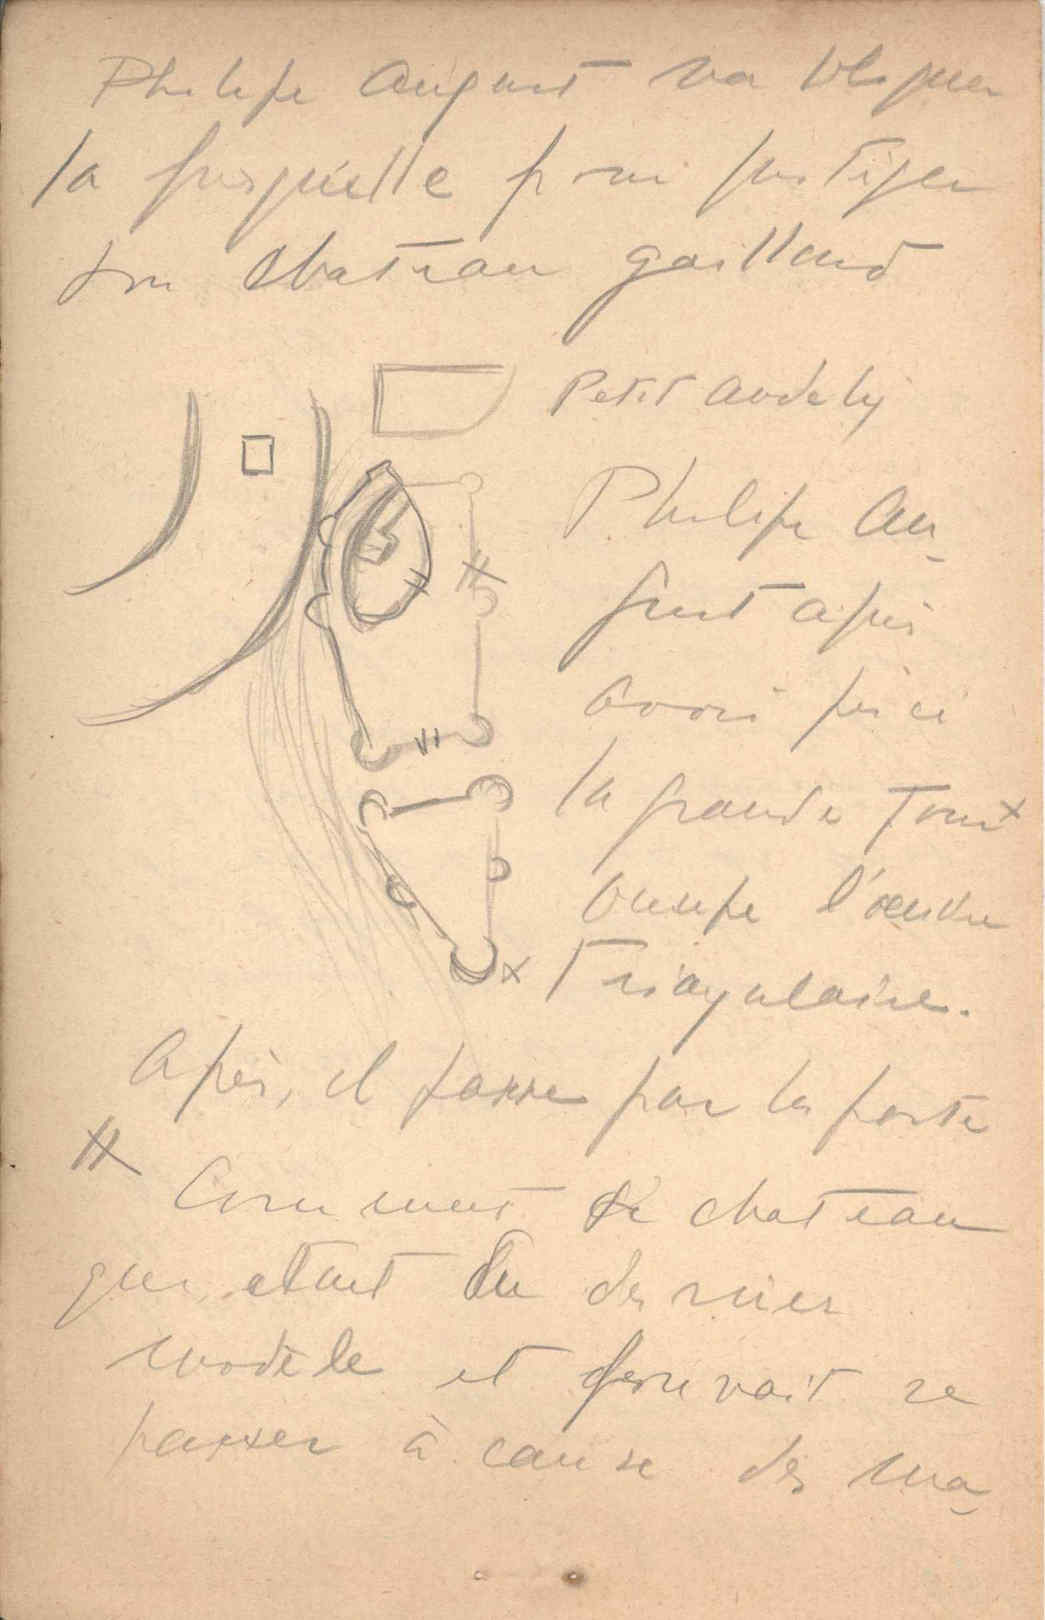 Philipe August va bloquer
la presquille pour
son chateau gaillard
Petit Andely
Philipe Au-
gust après
avoir
la grande Tour x
occupe l'œuvre
x Triagulaire.
Après, il passe par la porte
Comment chateau
qui etait du dernier
modèle et pouvait se
passer à cause des ma-